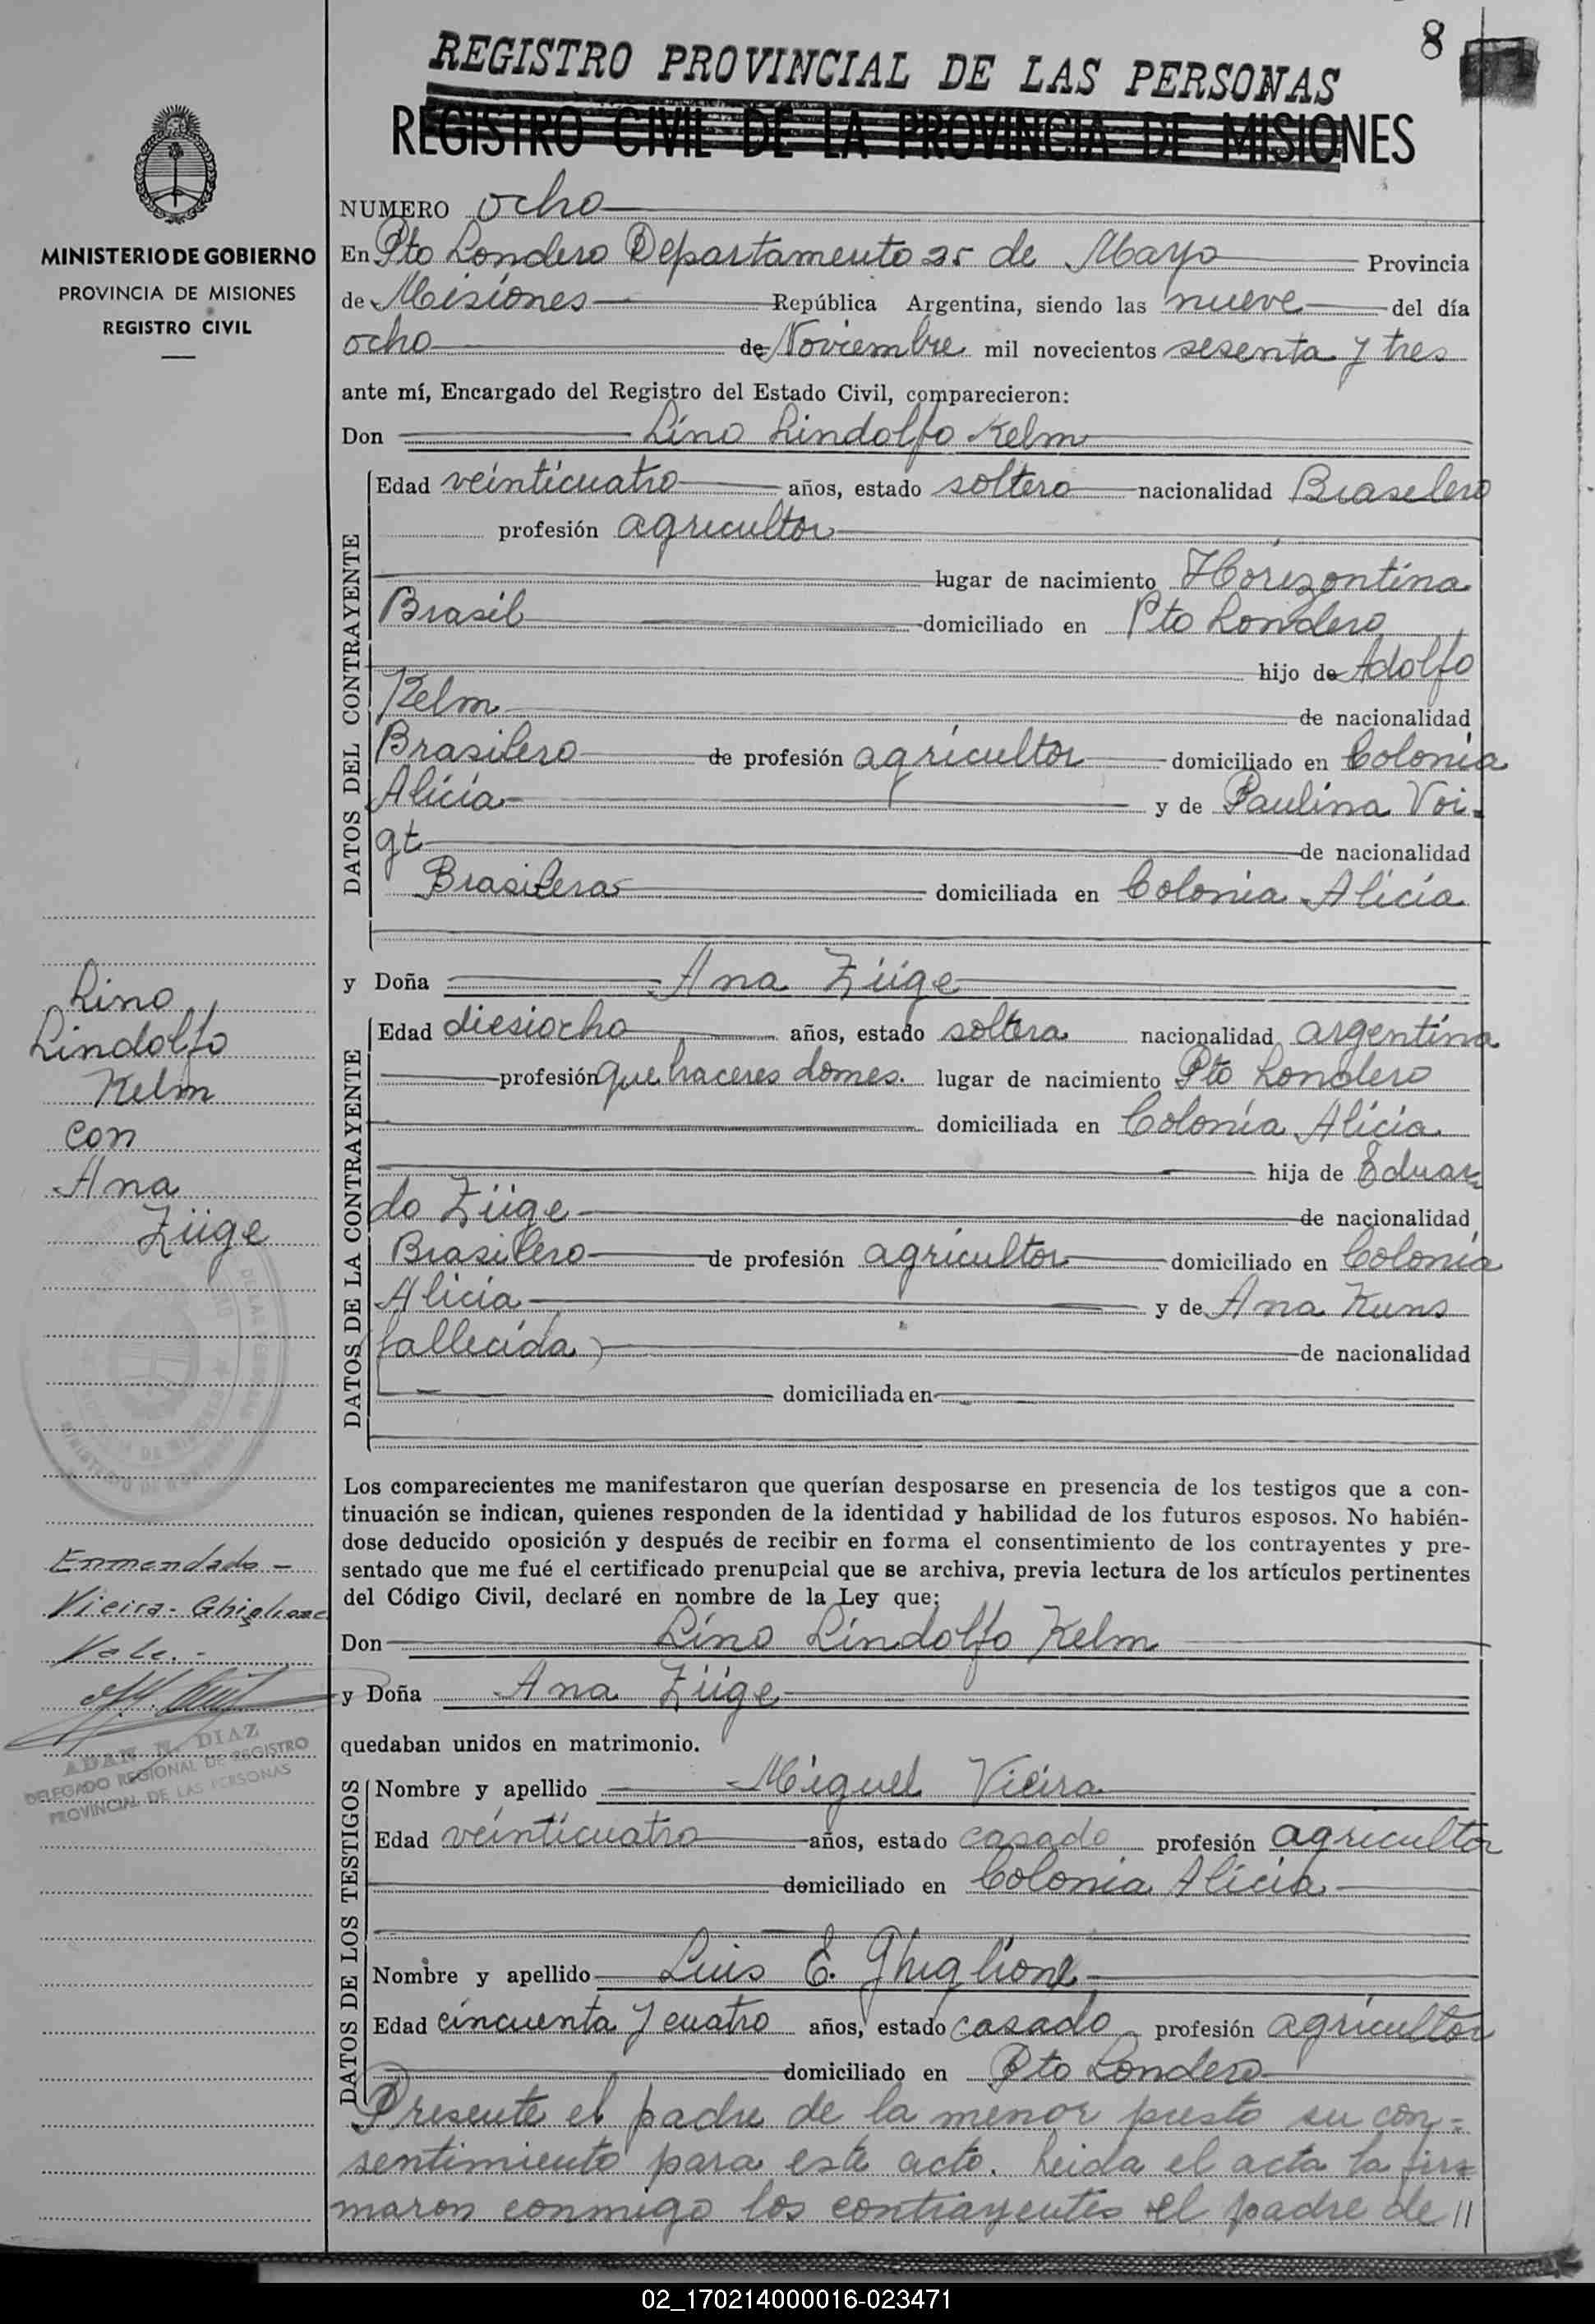 8
REGISTRO PROVINCIAL DE LAS PERSONAS
REGISTRO CIVIL DE LA PROVINCIA DE MISIONES
MINISTERIO DE GOBIERNO
PROVINCIA DE MISIONES
REGISTRO CIVIL
NUMERO ocho
En Pto Londero Departamento 25 de Mayo Provincia
de Misiones República Argentina, siendo las nueve del día
ocho de Noviembre mil novecientos sesenta y tres
ante mí, Encargado del Registro del Estado Civil, comparecieron:
Don Lino Lindolfo Kelm
DATOS DEL CONTRAYENTE
Edad veinticuatro años, estado soltero nacionalidad Braselero
profesión agricultor
lugar de nacimiento Horizontina
Brasil domiciliado en Pto Londero
hijo de Adolfo
Kelm de nacionalidad
Brasilero de profesión agricultor domiciliado en Colonia
Alicia y de Paulina Voi-
gt de nacionalidad
Brasilera domiciliada en Colonia Alicia
y Doña Ana Züge
DATOS DE LA CONTRAYENTE
Edad diesiocho años, estado soltera nacionalidad argentina
profesión que haceres domes. lugar de nacimiento Pto Londero
domiciliada en Colonia Alicia
hija de Eduar
do Züge de nacionalidad
Brasilero de profesión agricultor domiciliado en Colonia
Alicia y de Ana Kuns
(fallecida) de nacionalidad
domiciliada en
Lino
Lindolfo
Kelm
con
Ana
Züge
Los comparecientes me manifestaron que querían desposarse en presencia de los testigos que a con-
tinuación se indican, quienes responden de la identidad y habilidad de los futuros esposos. No habién-
dose deducido oposición y después de recibir en forma el consentimiento de los contrayentes y pre-
sentado que me fué el certificado prenupcial que se archiva, previa lectura de los artículos pertinentes
del Código Civil, declaré en nombre de la Ley que:
Don Lino Lindolfo Kelm
y Doña Ana Züge
quedaban unidos en matrimonio.
Enmendado -
Vieira - Ghiglione
Vale.-
ADAN N. DIAZ
DELEGADO REGIONAL DE REGISTRO
PROVINCIAL DE LAS PERSONAS
DATOS DE LOS TESTIGOS
Nombre y apellido Miguel Vieira
Edad veinticuatro años, estado casado profesión agricultor
domiciliado en Colonia Alicia
Nombre y apellido Luis E. Ghiglione
Edad cincuenta y cuatro años, estado casado profesión agricultor
domiciliado en Pto Londero
Presente el padre de la menor presto su con-
sentimiento para este acto. Leida el acta la fir-
maron conmigo los contrayentes el padre de //
02_170214000016-023471